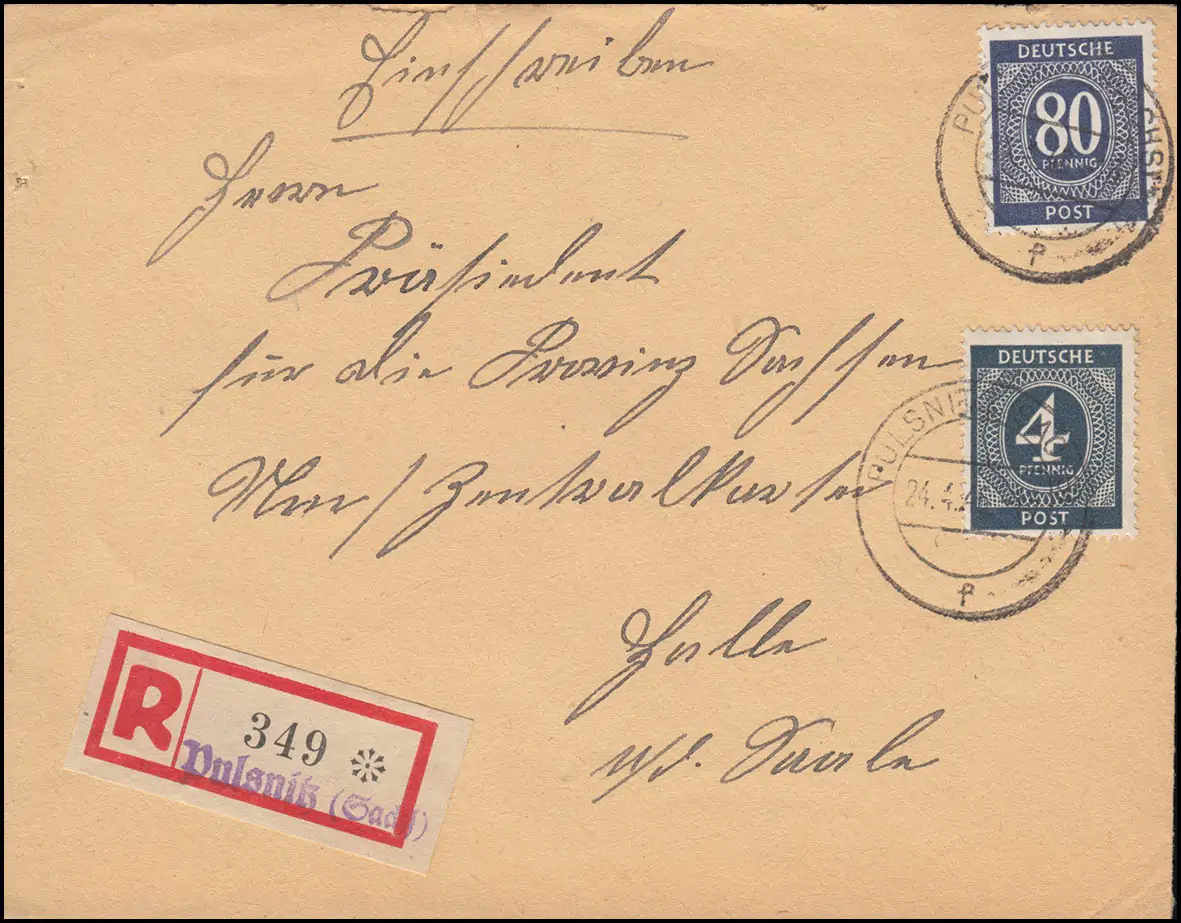 Einschreiben
Herrn
Präsiedent
für die Provinz Sachsen
Um/Zentralkartei
Halle
a/d. Saale
DEUTSCHE
80
PFENNIG
POST
DEUTSCHE
4
PFENNIG
POST
PULSNITZ
24.4.
f
f
R
349
Pulsnitz (Sachs)